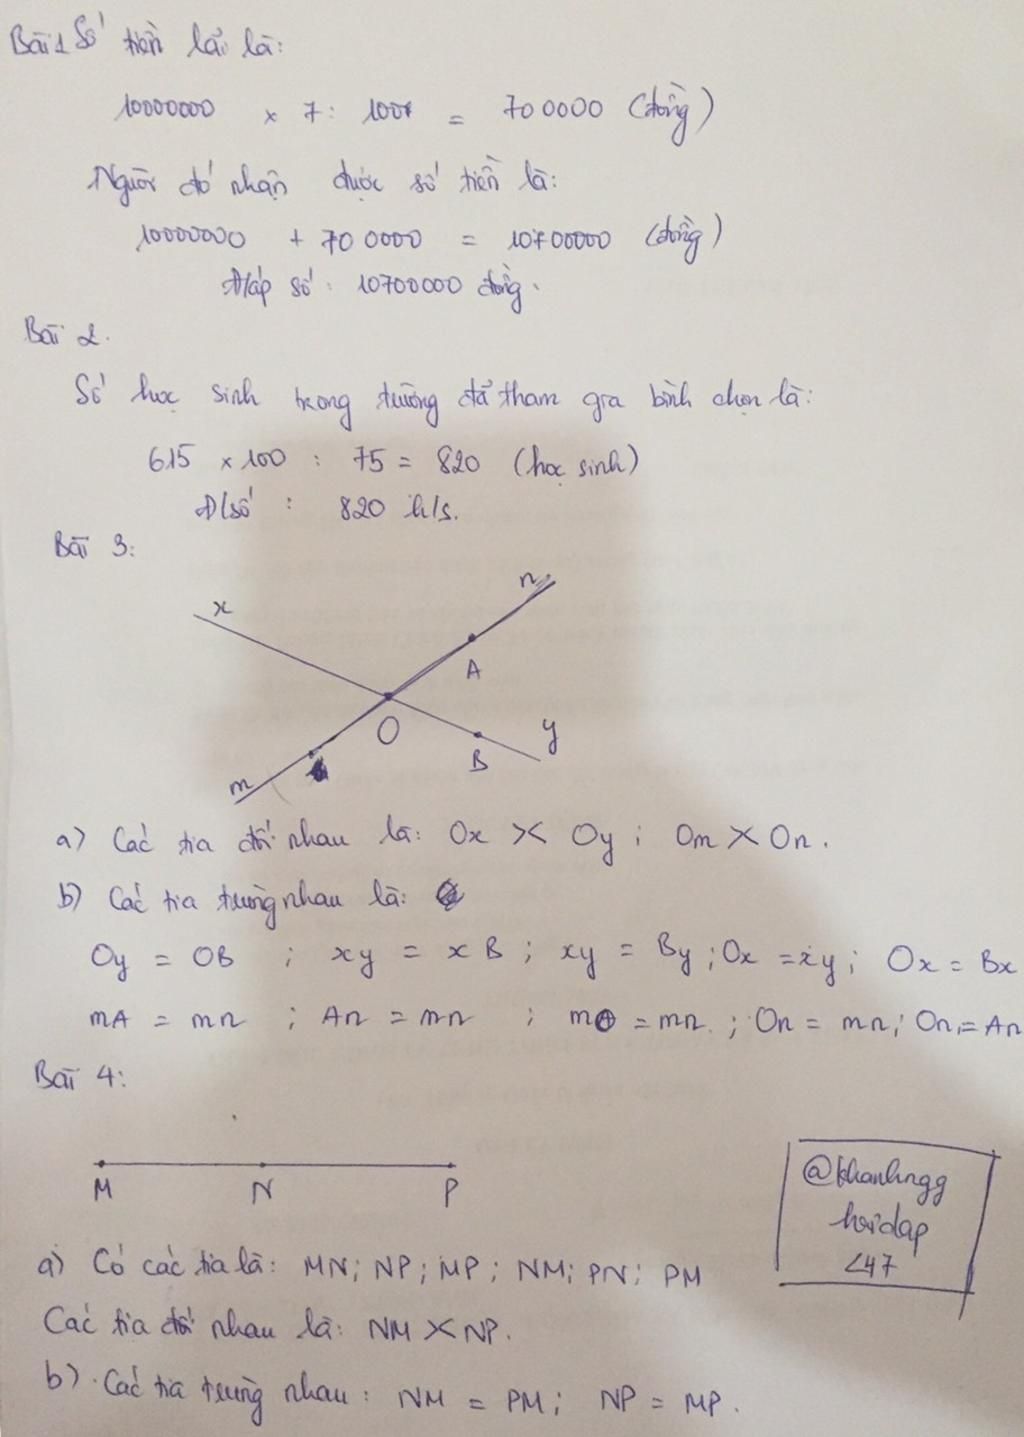 Bài 1 Số tiền lãi là:
10000000 x 7 : 100 = 700000 (đồng)
Người đó nhận được số tiền là:
10000000 + 700000 = 10700000 (đồng)
Đ/áp số: 10700000 đồng.
Bài 2.
Số học sinh trong trường đã tham gia bình chọn là:
615 x 100 : 75 = 820 (học sinh)
Đ/số : 820 h/s.
Bài 3:
x n
A
O
B y
m
a) Các tia đối nhau là: Ox >< Oy ; Om >< On.
b) Các tia trùng nhau là:
Oy = OB ; xy = xB ; xy = By ; Ox = xy ; Ox = Bx
mA = mn ; An = mn ; mO = mn ; On = mn ; On = An
Bài 4:
M N P
a) Có các tia là: MN; NP; MP; NM; PN; PM
Các tia đối nhau là: NM >< NP.
b) Các tia trùng nhau: NM = PM; NP = MP.
@khanhngg
hoidap
247